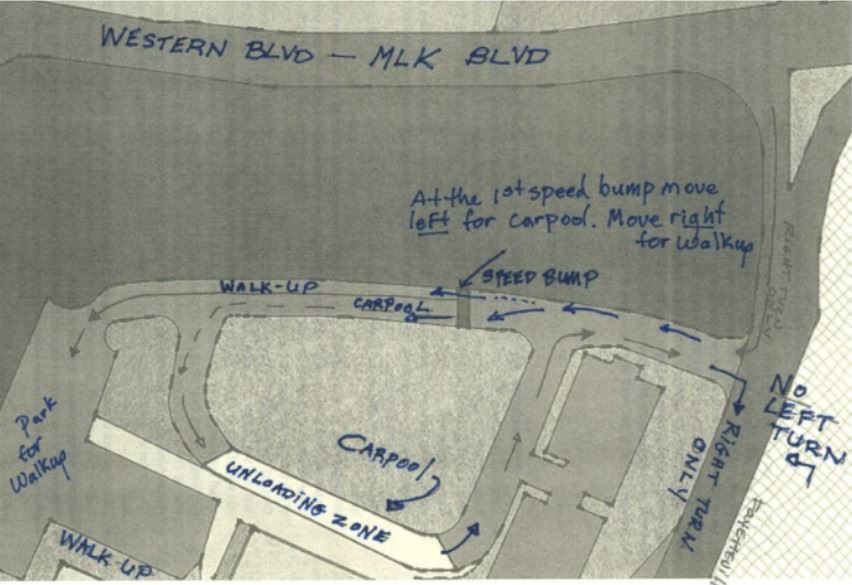 WESTERN BLVD - MLK BLVD
At the 1st speed bump move
left for carpool. Move right
for walkup
SPEED BUMP
WALK-UP
CARPOOL
RIGHT TURN
ONLY
NO
LEFT
TURN
RIGHT TURN
ONLY
Park
for
Walkup
CARPOOL
UNLOADING ZONE
WALK UP